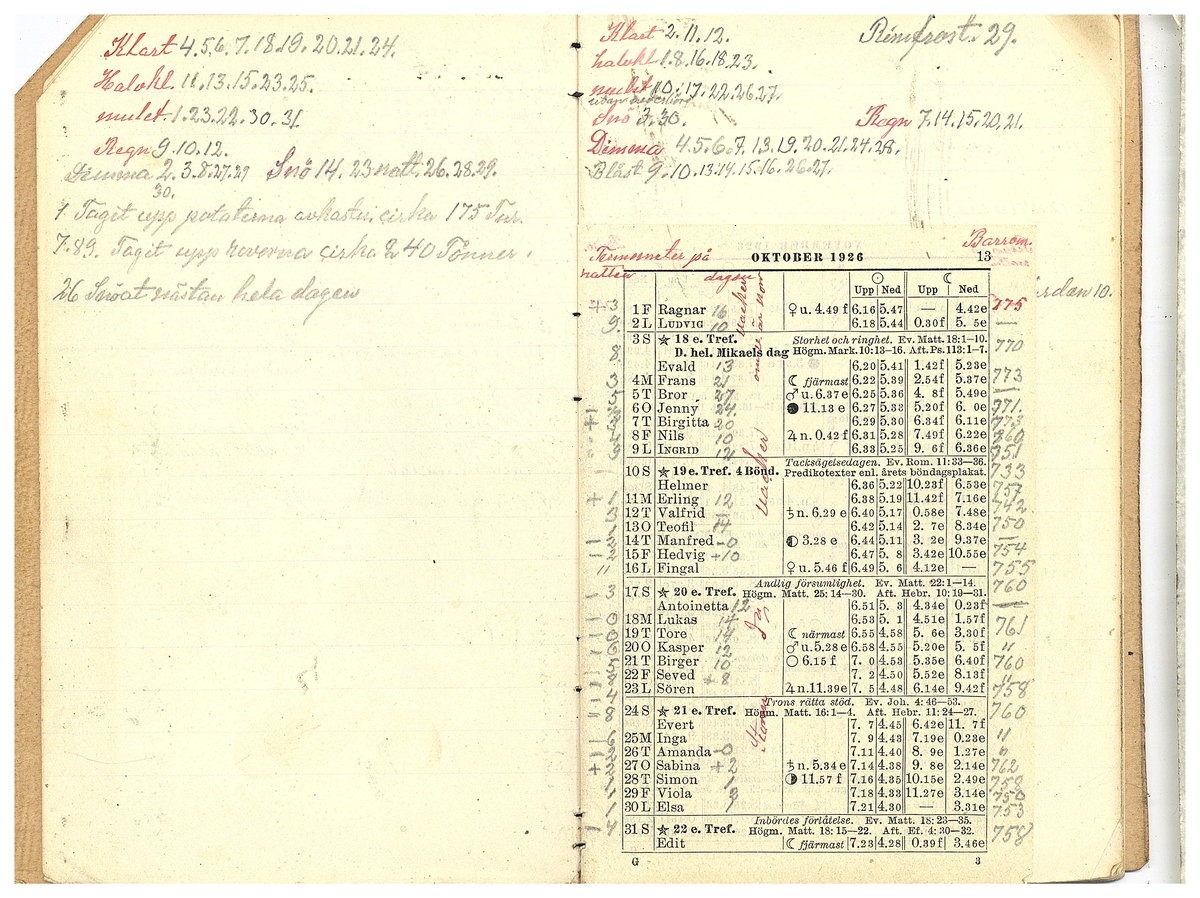 Klart 4.5.6.7.18.19.20.21.24.
Halvkl. 11.13.15.23.25.
mulet 1.23.22.30.31.
Regn 9.10.12.
Dimma 2.3.8.27.29 Snö 14.23 natt. 26.28.29.
30.
Taget upp potaterna avkastn. cirka 175 Tnr.
7.89. Taget upp roverna cirka 240 Tönner.
26 Snöat nästan hela dagen
Klart 2.11.12. Rimfrost. 29.
halvkl. 1.8.16.18.23.
mulet 10.17.22.26.27.
Snö 3.30. Regn 7.14.15.20.21.
Dimma 4.5.6.7.13.19.20.21.24.28.
Blåst 9.10.13.14.15.16.26.27.
Termometer på Barrom.
natten dagen
OKTOBER 1926 13
Upp Ned Upp Ned
1 F Ragnar 16 ♀ u. 4.49 f 6.16 5.47 — 4.42e 775
2 L LUDVIG 10 6.18 5.44 0.30f 5. 5e —
3 S ★ 18 e. Tref. Storhet och ringhet. Ev. Matt. 18:1–10. 770
D. hel. Mikaels dag Högm. Mark. 10:13–16. Aft. Ps. 113:1–7.
Evald 13 6.20 5.41 1.42f 5.23e
4 M Frans 21 ☾ fjärmast 6.22 5.39 2.54f 5.37e 773
5 T Bror 27 ♂ u. 6.37 e 6.25 5.36 4. 8f 5.49e —
6 O Jenny 24 ● 11.13 e 6.27 5.33 5.20f 6. 0e 771.
7 T Birgitta 20 6.29 5.30 6.34f 6.11e 773
8 F Nils 10 ♃ n. 0.42 f 6.31 5.28 7.49f 6.22e 760
9 L INGRID 12 6.33 5.25 9. 6f 6.36e 751
10 S ★ 19 e. Tref. 4 Bönd. Tacksägelsedagen. Ev. Rom. 11:33–36. 733
Predikotexter enl. årets böndagsplakat.
Helmer 6.36 5.22 10.23f 6.53e 757
11 M Erling 12 6.38 5.19 11.42f 7.16e 742
12 T Valfrid ♄ n. 6.29 e 6.40 5.17 0.58e 7.48e
13 O Teofil 6.42 5.14 2. 7e 8.34e 750
14 T Manfred -0 ◐ 3.28 e 6.44 5.11 3. 2e 9.37e —
15 F Hedvig +10 6.47 5. 8 3.42e 10.55e 754
16 L Fingal ♀ u. 5.46 f 6.49 5. 6 4.12e — 755
17 S ★ 20 e. Tref. Andlig försumlighet. Ev. Matt. 22:1–14. 760
Högm. Matt. 25:14–30. Aft. Hebr. 10:19–31.
Antoinetta 12 6.51 5. 3 4.34e 0.23f —
18 M Lukas 14 6.53 5. 1 4.51e 1.57f 761
19 T Tore 14 ☾ närmast 6.55 4.58 5. 6e 3.30f
20 O Kasper 12 ♂ u. 5.28 e 6.58 4.55 5.20e 5. 5f "
21 T Birger 10 ○ 6.15 f 7. 0 4.53 5.35e 6.40f 760
22 F Seved +8 7. 2 4.50 5.52e 8.13f "
23 L Sören ♃ n. 11.39 e 7. 5 4.48 6.14e 9.42f 758
24 S ★ 21 e. Tref. Trons rätta stöd. Ev. Joh. 4:46–53. 760
Högm. Matt. 16:1–4. Aft. Hebr. 11:24–27.
Evert 7. 7 4.45 6.42e 11. 7f
25 M Inga 7. 9 4.43 7.19e 0.23e "
26 T Amanda -0 7.11 4.40 8. 9e 1.27e "
27 O Sabina +2 ♄ n. 5.34 e 7.14 4.38 9. 8e 2.14e 762
28 T Simon 1 ◑ 11.57 f 7.16 4.35 10.15e 2.49e 758
29 F Viola 3 7.18 4.33 11.27e 3.14e 750
30 L Elsa 1 7.21 4.30 — 3.31e 753
31 S ★ 22 e. Tref. Inbördes förlåtelse. Ev. Matt. 18:23–35. 758
Högm. Matt. 18:15–22. Aft. Ef. 4:30–32.
Edit ☾ fjärmast 7.23 4.28 0.39f 3.46e
G 3